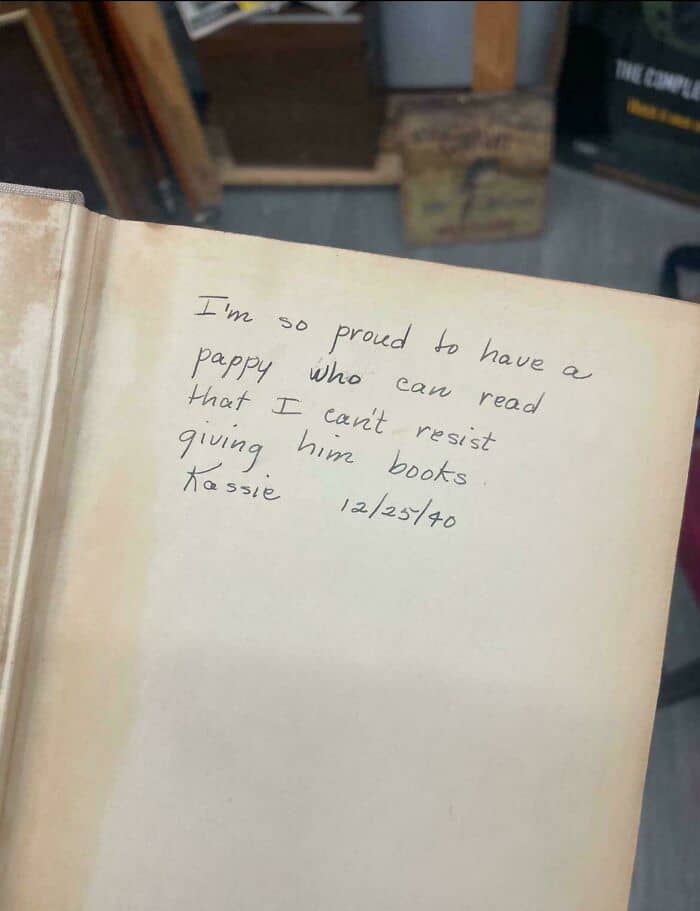 I'm so proud to have a
pappy who can read
that I can't resist
giving him books.
Kassie 12/25/40
THE COMPLE